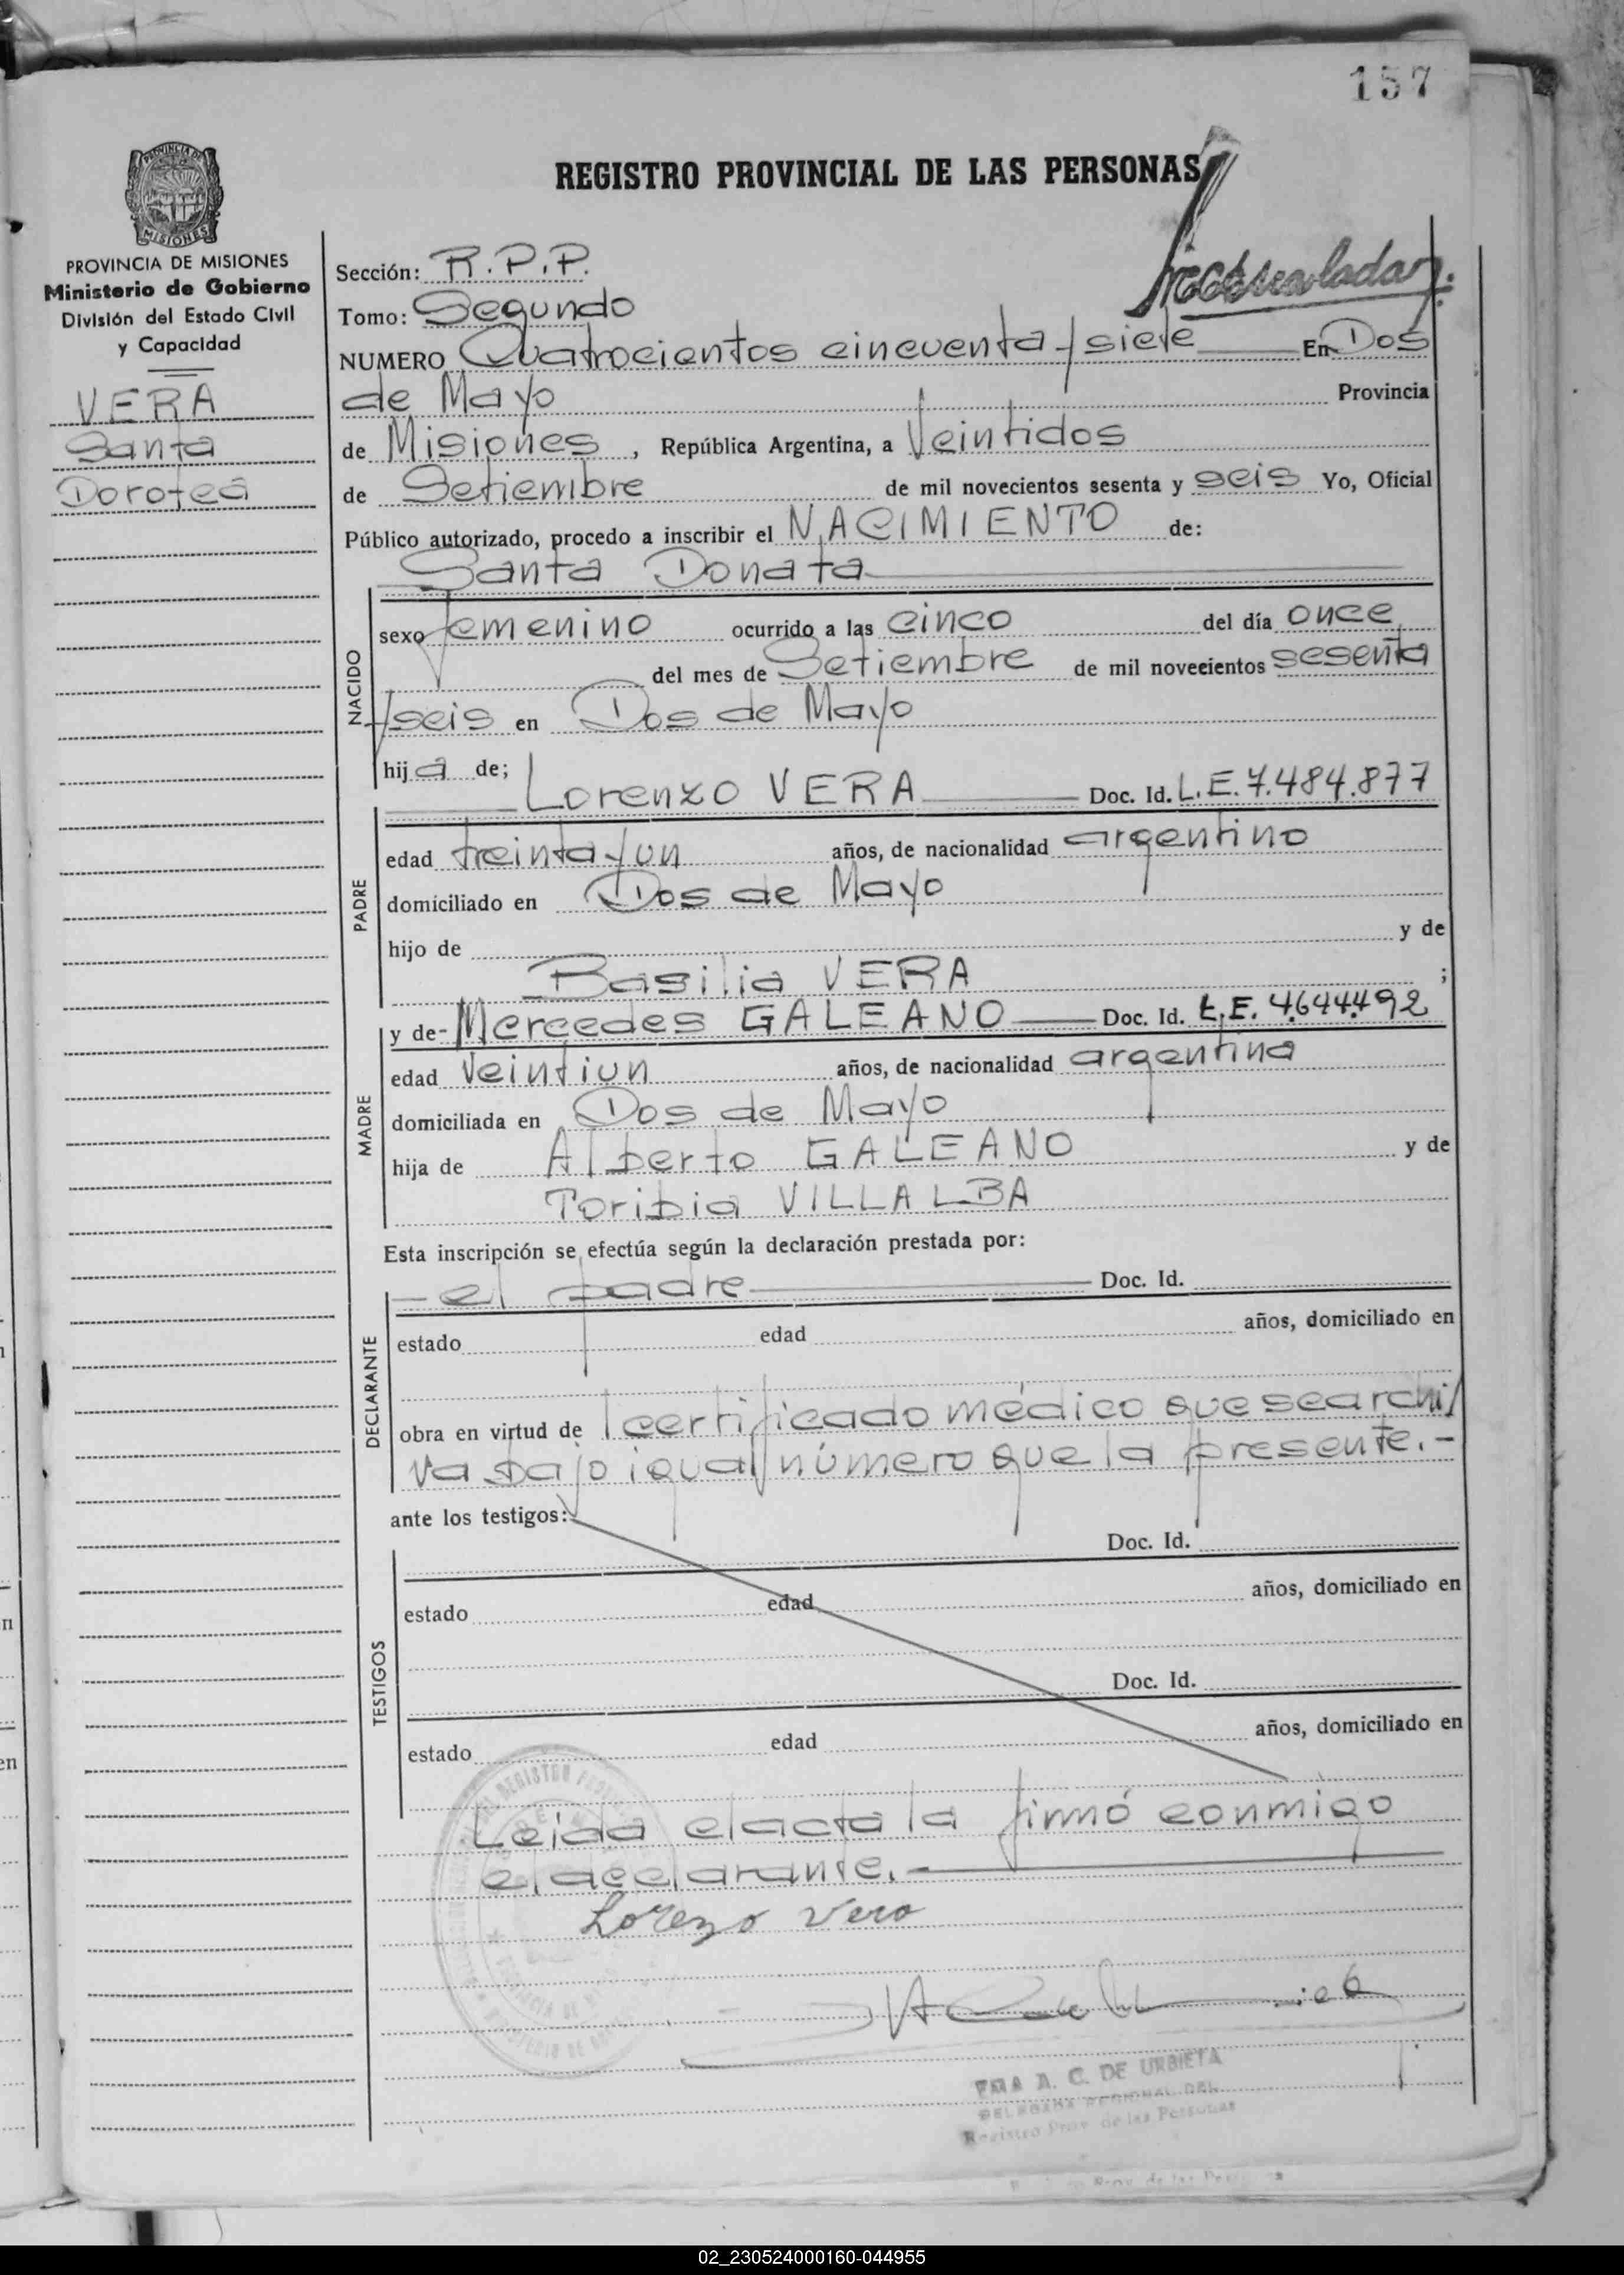 157
REGISTRO PROVINCIAL DE LAS PERSONAS
PROVINCIA DE MISIONES
MISIONES
PROVINCIA DE MISIONES
Ministerio de Gobierno
División del Estado Civil
y Capacidad
VERA
Santa
Dorotea
Sección: R.P.P.
Tomo: Segundo
NUMERO Cuatrocientos cincuenta y siete En Dos
de Mayo Provincia
de Misiones, República Argentina, a Veintidos
de Setiembre de mil novecientos sesenta y seis Yo, Oficial
Público autorizado, procedo a inscribir el NACIMIENTO de:
Santa Donata
NACIDO
sexo femenino ocurrido a las cinco del día once
del mes de Setiembre de mil novecientos sesenta
y seis en Dos de Mayo
hija de;
Lorenzo VERA Doc. Id. L.E. 7.484.877
PADRE
edad treinta y un años, de nacionalidad argentino
domiciliado en Dos de Mayo
hijo de y de
Basilia VERA ;
y de- Mercedes GALEANO Doc. Id. L.E. 4.644.492
MADRE
edad Veintiun años, de nacionalidad argentina
domiciliada en Dos de Mayo
hija de Alberto GALEANO y de
Toribia VILLALBA
Esta inscripción se efectúa según la declaración prestada por:
- el padre Doc. Id.
DECLARANTE
estado edad años, domiciliado en
obra en virtud de l certificado médico que se archi/
va bajo igual número que la presente.-
ante los testigos:
Doc. Id.
TESTIGOS
estado edad años, domiciliado en
Doc. Id.
estado edad años, domiciliado en
Leida el acta la firmó conmigo
el declarante.-
Lorenzo Vera
A. C. DE URBIETA
DELEGADA REGIONAL DEL
Registro Prov. de las Personas
02_230524000160-044955